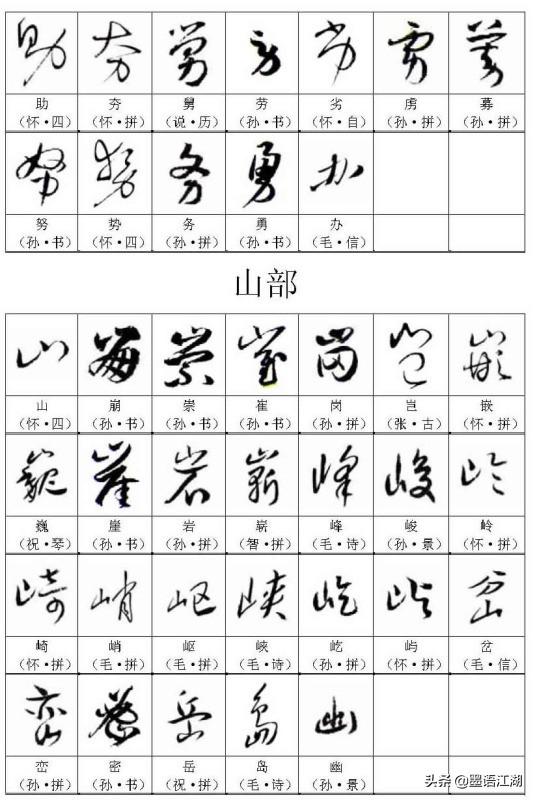 助 夯 舅 劳 劣 虏 募
（怀·四） （怀·拼） （说·历） （孙·书） （怀·自） （孙·拼） （孙·拼）
努 势 务 勇 办
（孙·书） （怀·四） （孙·拼） （孙·书） （毛·信）
山部
山 崩 崇 崔 岗 岂 嵌
（怀·四） （孙·书） （孙·书） （孙·书） （孙·拼） （张·古） （怀·拼）
巍 崖 岩 崭 峰 峻 岭
（祝·琴） （孙·书） （孙·拼） （智·拼） （毛·诗） （孙·景） （怀·拼）
崎 峭 岖 峡 屹 屿 岔
（怀·拼） （毛·拼） （毛·拼） （毛·诗） （孙·拼） （怀·拼） （毛·信）
峦 密 岳 岛 幽
（孙·拼） （孙·书） （祝·拼） （毛·诗） （孙·景）
头条 @墨语江湖